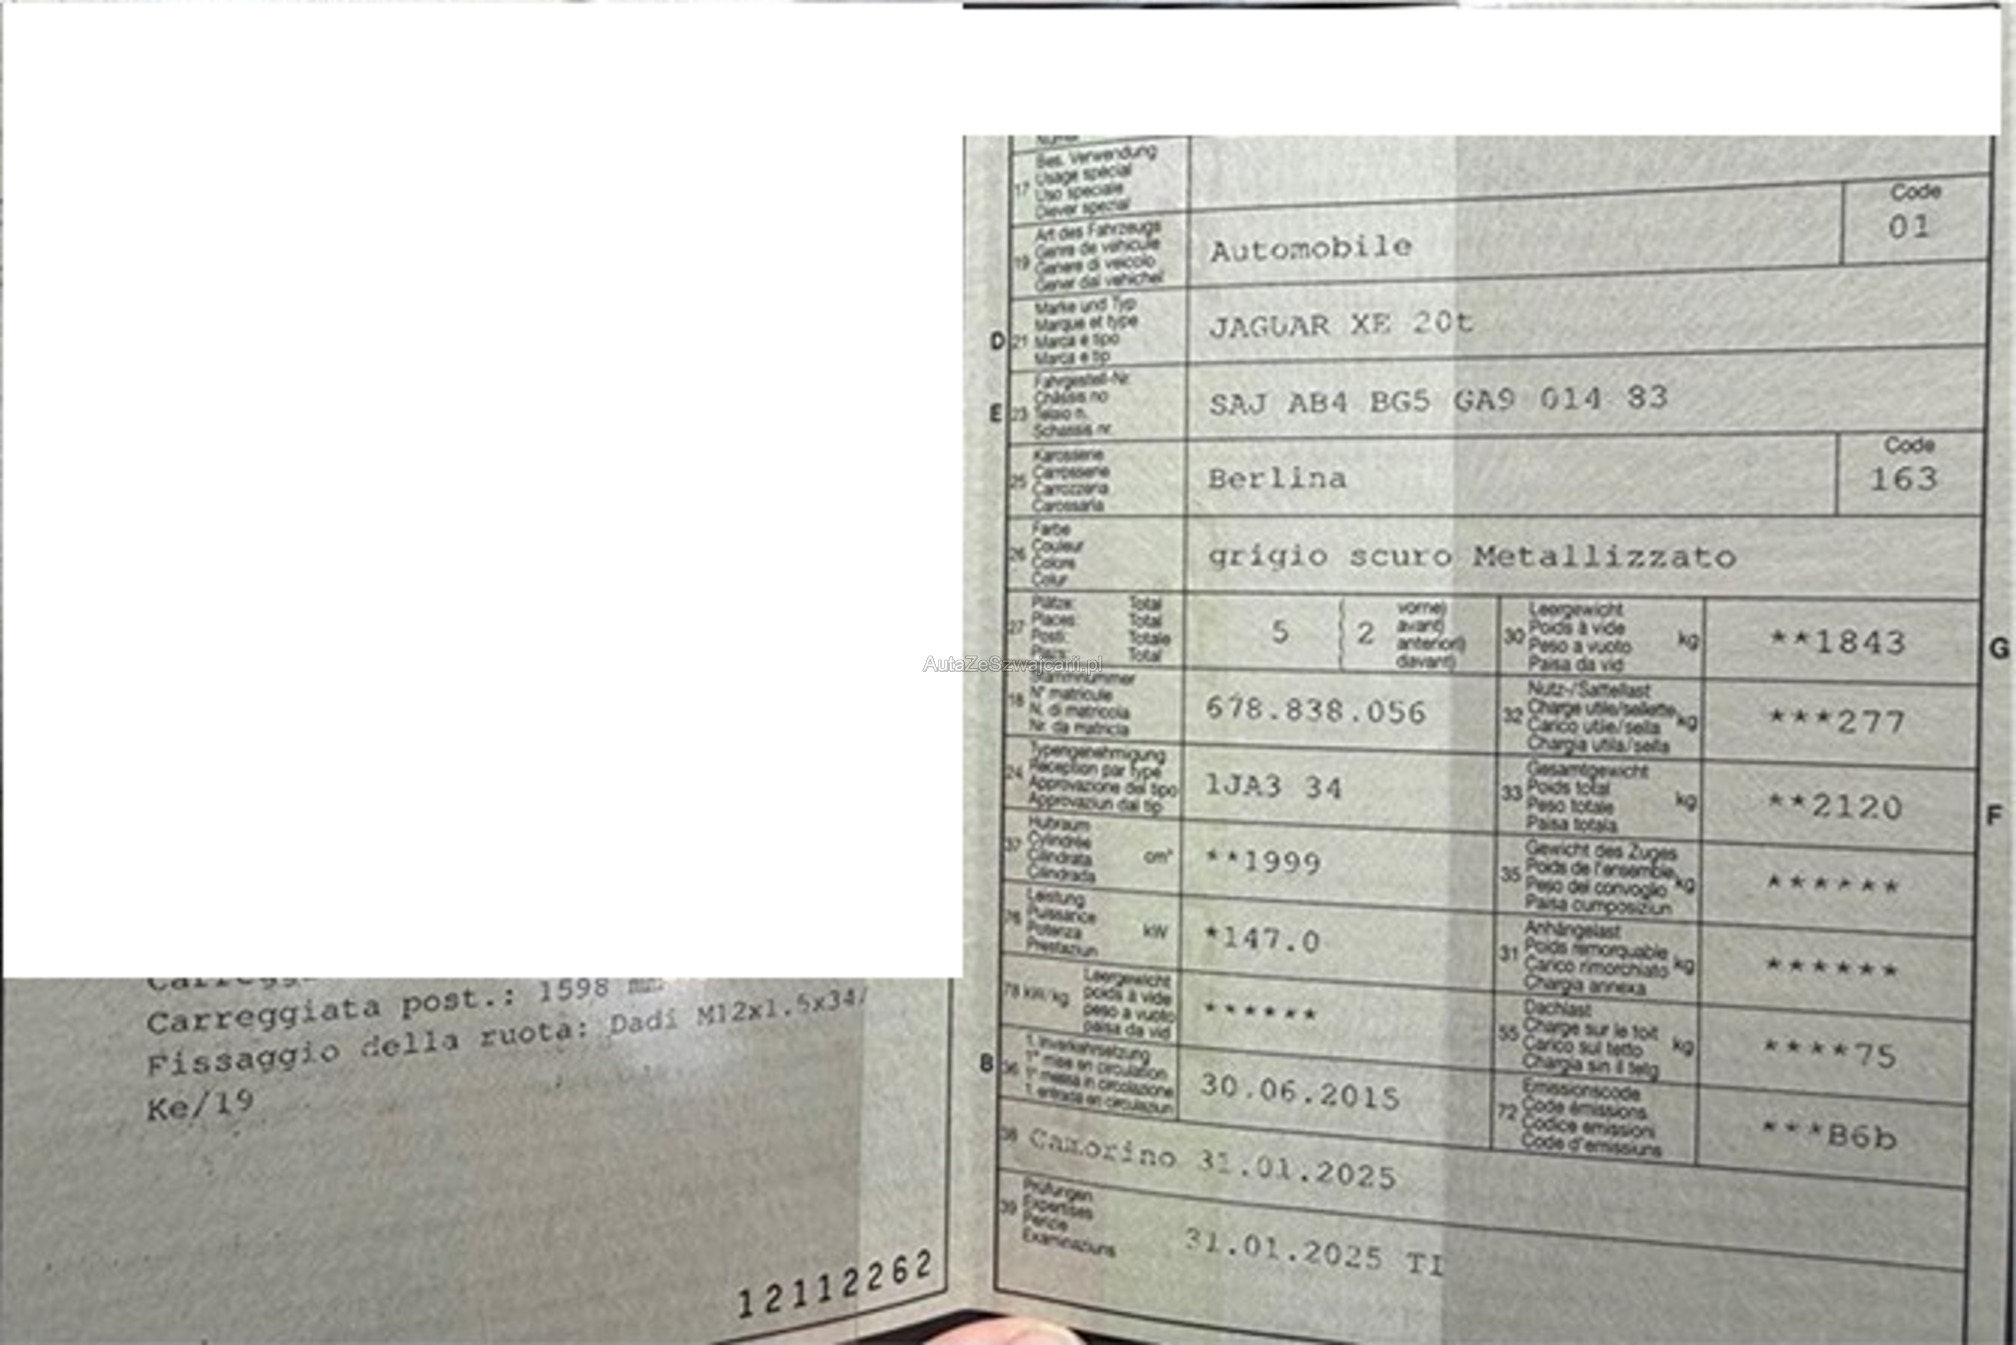 Carreggiata post.: 1598 mm
Fissaggio della ruota: Dadi M12x1.5x34/
Ke/19
12112262
17 Bes. Verwendung
Usage spécial
Uso speciale
Diever spezial
19 Art des Fahrzeugs
Genre de véhicule
Genere di veicolo
Gener dal vehichel
Automobile
Code
01
D 21 Marke und Typ
Marque et type
Marca e tipo
Marca e tip
JAGUAR XE 20t
E 23 Fahrgestell-Nr.
Châssis no
Telaio n.
Schassis nr.
SAJ AB4 BG5 GA9 014 83
25 Karosserie
Carrosserie
Carrozzeria
Carossaria
Berlina
Code
163
26 Farbe
Couleur
Colore
Colur
grigio scuro Metallizzato
27 Plätze: Total
Places: Total
Posti: Totale
Plazs: Total
5 ( 2 vorne)
avant)
anteriori)
davant)
30 Leergewicht
Poids à vide
Peso a vuoto
Paisa da vid
kg
**1843
G
AutaZeSzwajcarii.pl
18 Stammnummer
N° matricule
N. di matricola
Nr. da matricla
678.838.056
32 Nutz-/Sattellast
Charge utile/sellette
Carico utile/sella
Chargia utila/sella
kg
***277
24 Typengenehmigung
Réception par type
Approvazione del tipo
Approvaziun dal tip
1JA3 34
33 Gesamtgewicht
Poids total
Peso totale
Paisa totala
kg
**2120
F
37 Hubraum
Cylindrée
Cilindrata
Cilindrada
cm³
**1999
35 Gewicht des Zuges
Poids de l'ensemble
Peso del convoglio
Paisa cumposiziun
kg
******
76 Leistung
Puissance
Potenza
Prestaziun
kW
*147.0
31 Anhängelast
Poids remorquable
Carico rimorchiato
Chargia annexa
kg
******
78 kW/kg Leergewicht
poids à vide
peso a vuoto
paisa da vid
******
55 Dachlast
Charge sur le toit
Carico sul tetto
Chargia sin il tetg
kg
****75
B 36 1. Inverkehrsetzung
1re mise en circulation
1a messa in circolazione
1. entrada en circulaziun
30.06.2015
72 Emissionscode
Code émissions
Codice emissioni
Code d'emissiuns
***B6b
38 Camorino 31.01.2025
39 Prüfungen
Expertises
Perizie
Examinaziuns
31.01.2025 TI